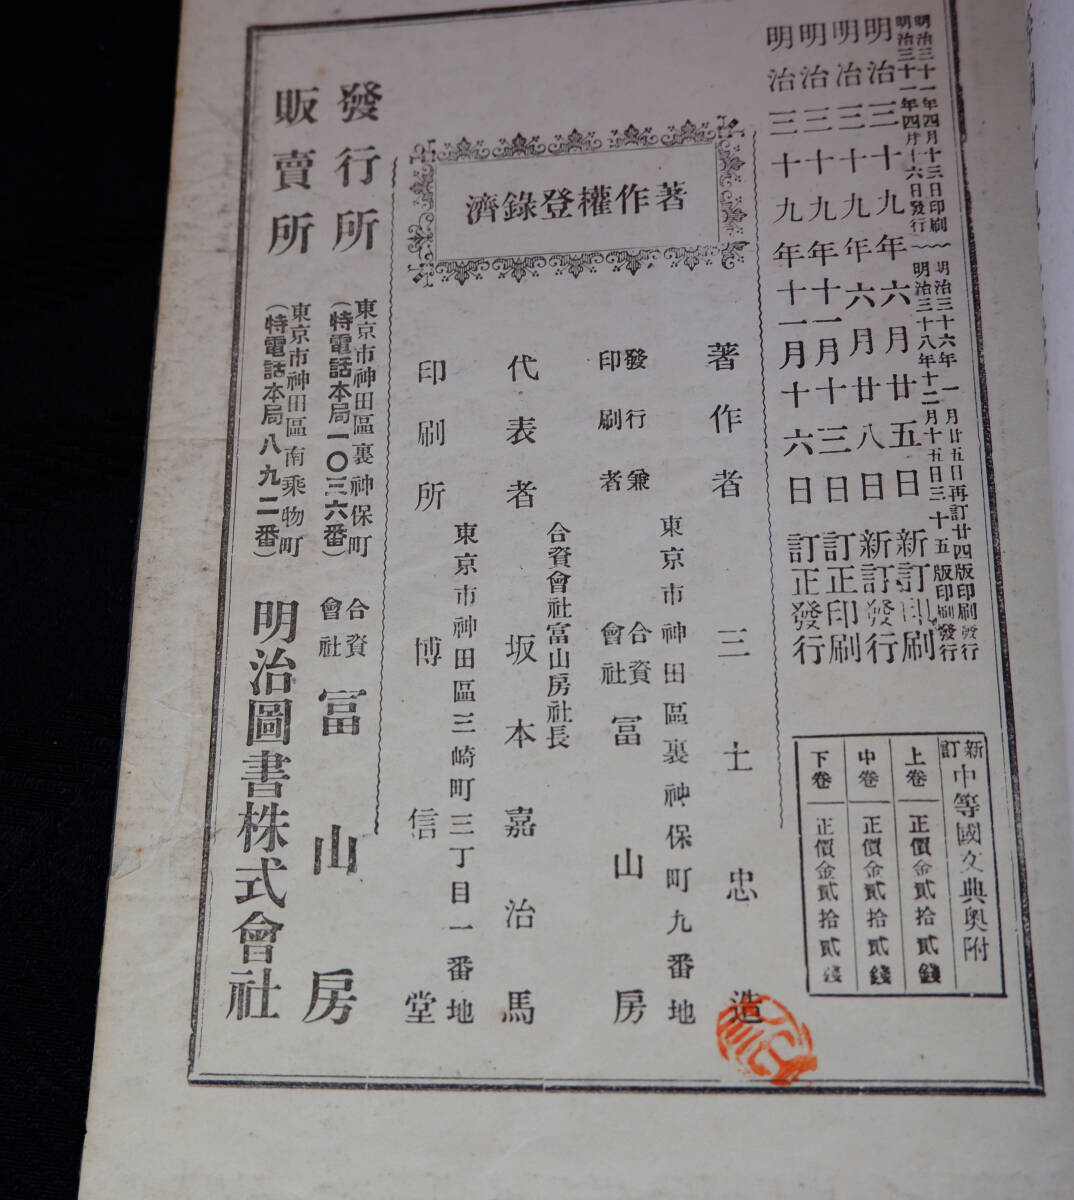 明治三十一年四月十三日印刷
明治三十一年四月十六日發行
明治三十六年一月廿五日再訂廿四版印刷發行
明治三十八年十二月十五日三十五版印刷發行
明治三十九年六月廿五日新訂印刷
明治三十九年六月廿八日新訂發行
明治三十九年十一月十三日訂正印刷
明治三十九年十一月十六日訂正發行
新訂中等國文典奧附
上卷 正價金貳拾貳錢
中卷 正價金貳拾貳錢
下卷 正價金貳拾貳錢
著作權登錄濟
著作者 三土忠造
東京市神田區裏神保町九番地
發行兼印刷者 合資會社冨山房
合資會社富山房社長
代表者 坂本嘉治馬
東京市神田區三崎町三丁目一番地
印刷所 博信堂
發行所 東京市神田區裏神保町
(特電話本局一〇三六番)
合資會社 冨山房
販賣所 東京市神田區南乘物町
(特電話本局八九二番)
明治圖書株式會社